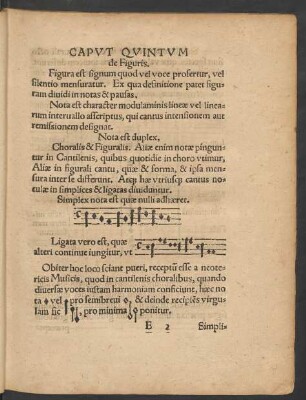 CAPVT QVINTVM
de Figuris.
Figura est signum quod vel voce profertur, vel
silentio mensuratur. Ex qua definitione patet figu
ram diuidi in notas & pausas.
Nota est character modulaminis lineæ vel linea-
rum interuallo asscriptus, qui cantus intensionem aut
remissionem designat.
Nota est duplex.
Choralis & Figuralis. Aliæ enim notæ pingun-
tur in Cantilenis, quibus quotidie in choro vtimur,
Aliæ in figurali cantu, quæ & forma, & ipsa men-
sura inter se differunt. Atqȝ hæ vtriusqȝ cantus no-
tulæ in simplices & ligatas diuiduntur.
Simplex nota est quæ nulli adhæret.
Ligata vero est, quæ
alteri continue iungitur, vt
Obiter hoc loco sciant pueri, receptū esse a neote-
ricis Musicis, quod in cantilenis choralibus, quando
diuersæ voces iustam harmoniam conficiunt, hæc no
ta vel pro semibreui & deinde recipiēs virgu
lam sic pro minima ponitur.
E 2 Simpli-